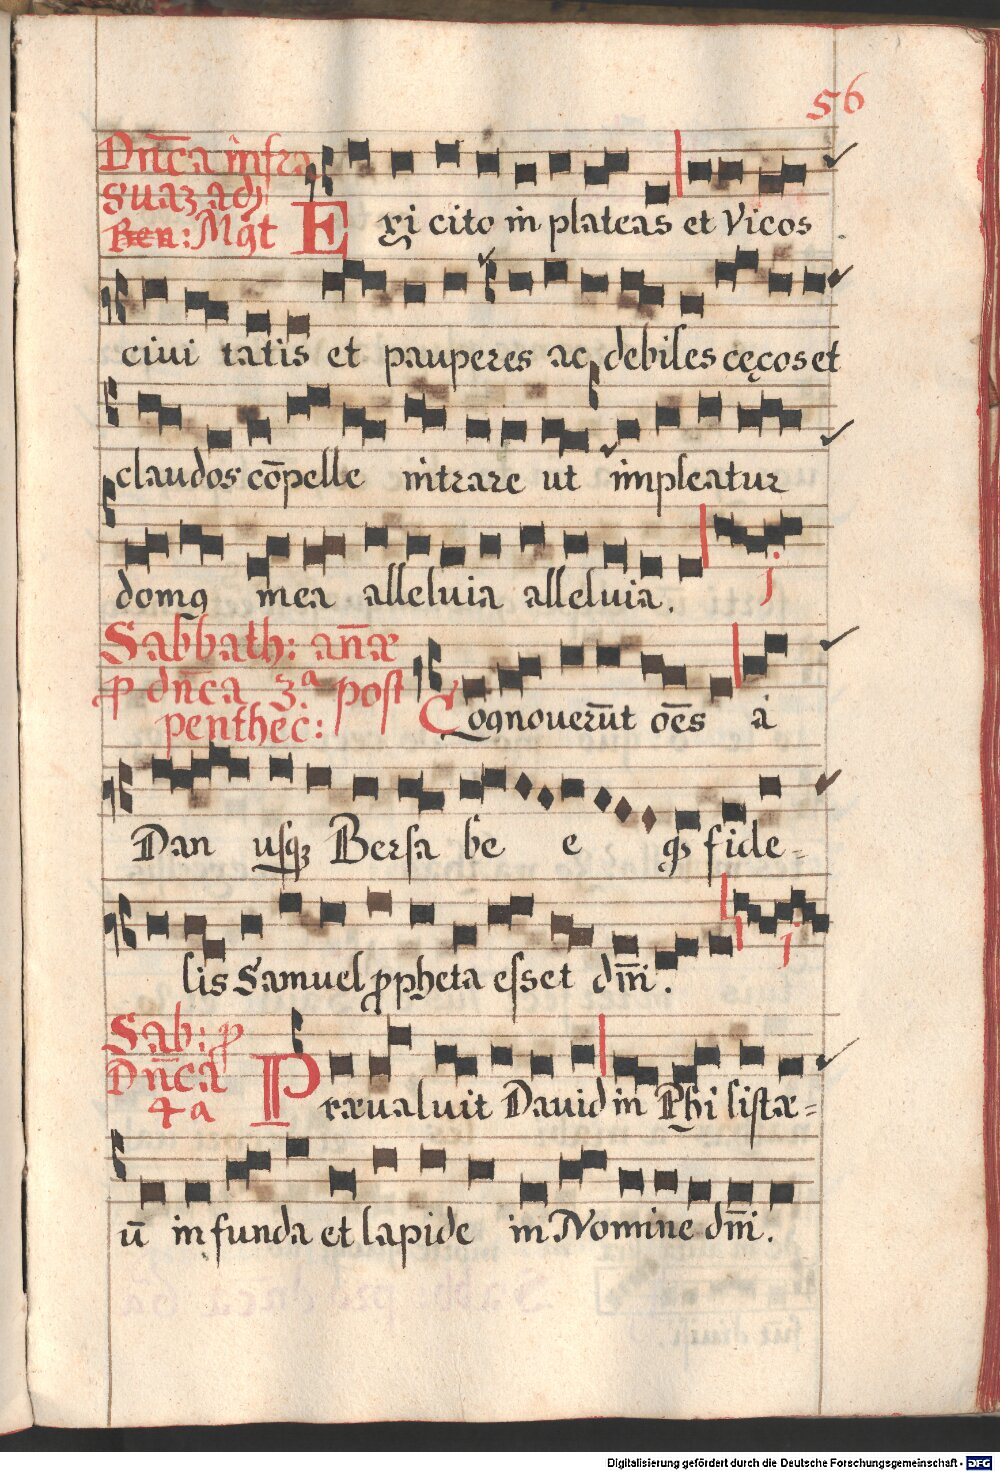 56
Dn̄ca infra
Suaꝫ ad
Ben: Mgt Exi cito in plateas et Vicos
ciui tatis et pauperes ac debiles cęcos et
claudos cōpelle intrare ut impleatur
domꝯ mea alleluia alleluia.
Sabbath: an̄æ
ꝓ dn̄ca 3.ª post
penthec: Cognouerūt oēs à
Dan usqꝫ Bersa be e qꝫ fide-
lis Samuel ꝓpheta esset dn̄i.
Sab: ꝓ
Dn̄ca
4 a Præualuit Dauid in Phi listæ=
ū in funda et lapide in Nomine dn̄i.
Digitalisierung gefördert durch die Deutsche Forschungsgemeinschaft - DFG